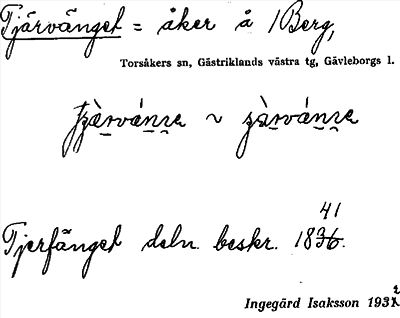 Tjärvänget = åker å /Berg,
Torsåkers sn, Gästriklands västra tg, Gävleborgs l.
~
41
Tjerfänget deln. beskr. 1836.
Ingegärd Isaksson 1932